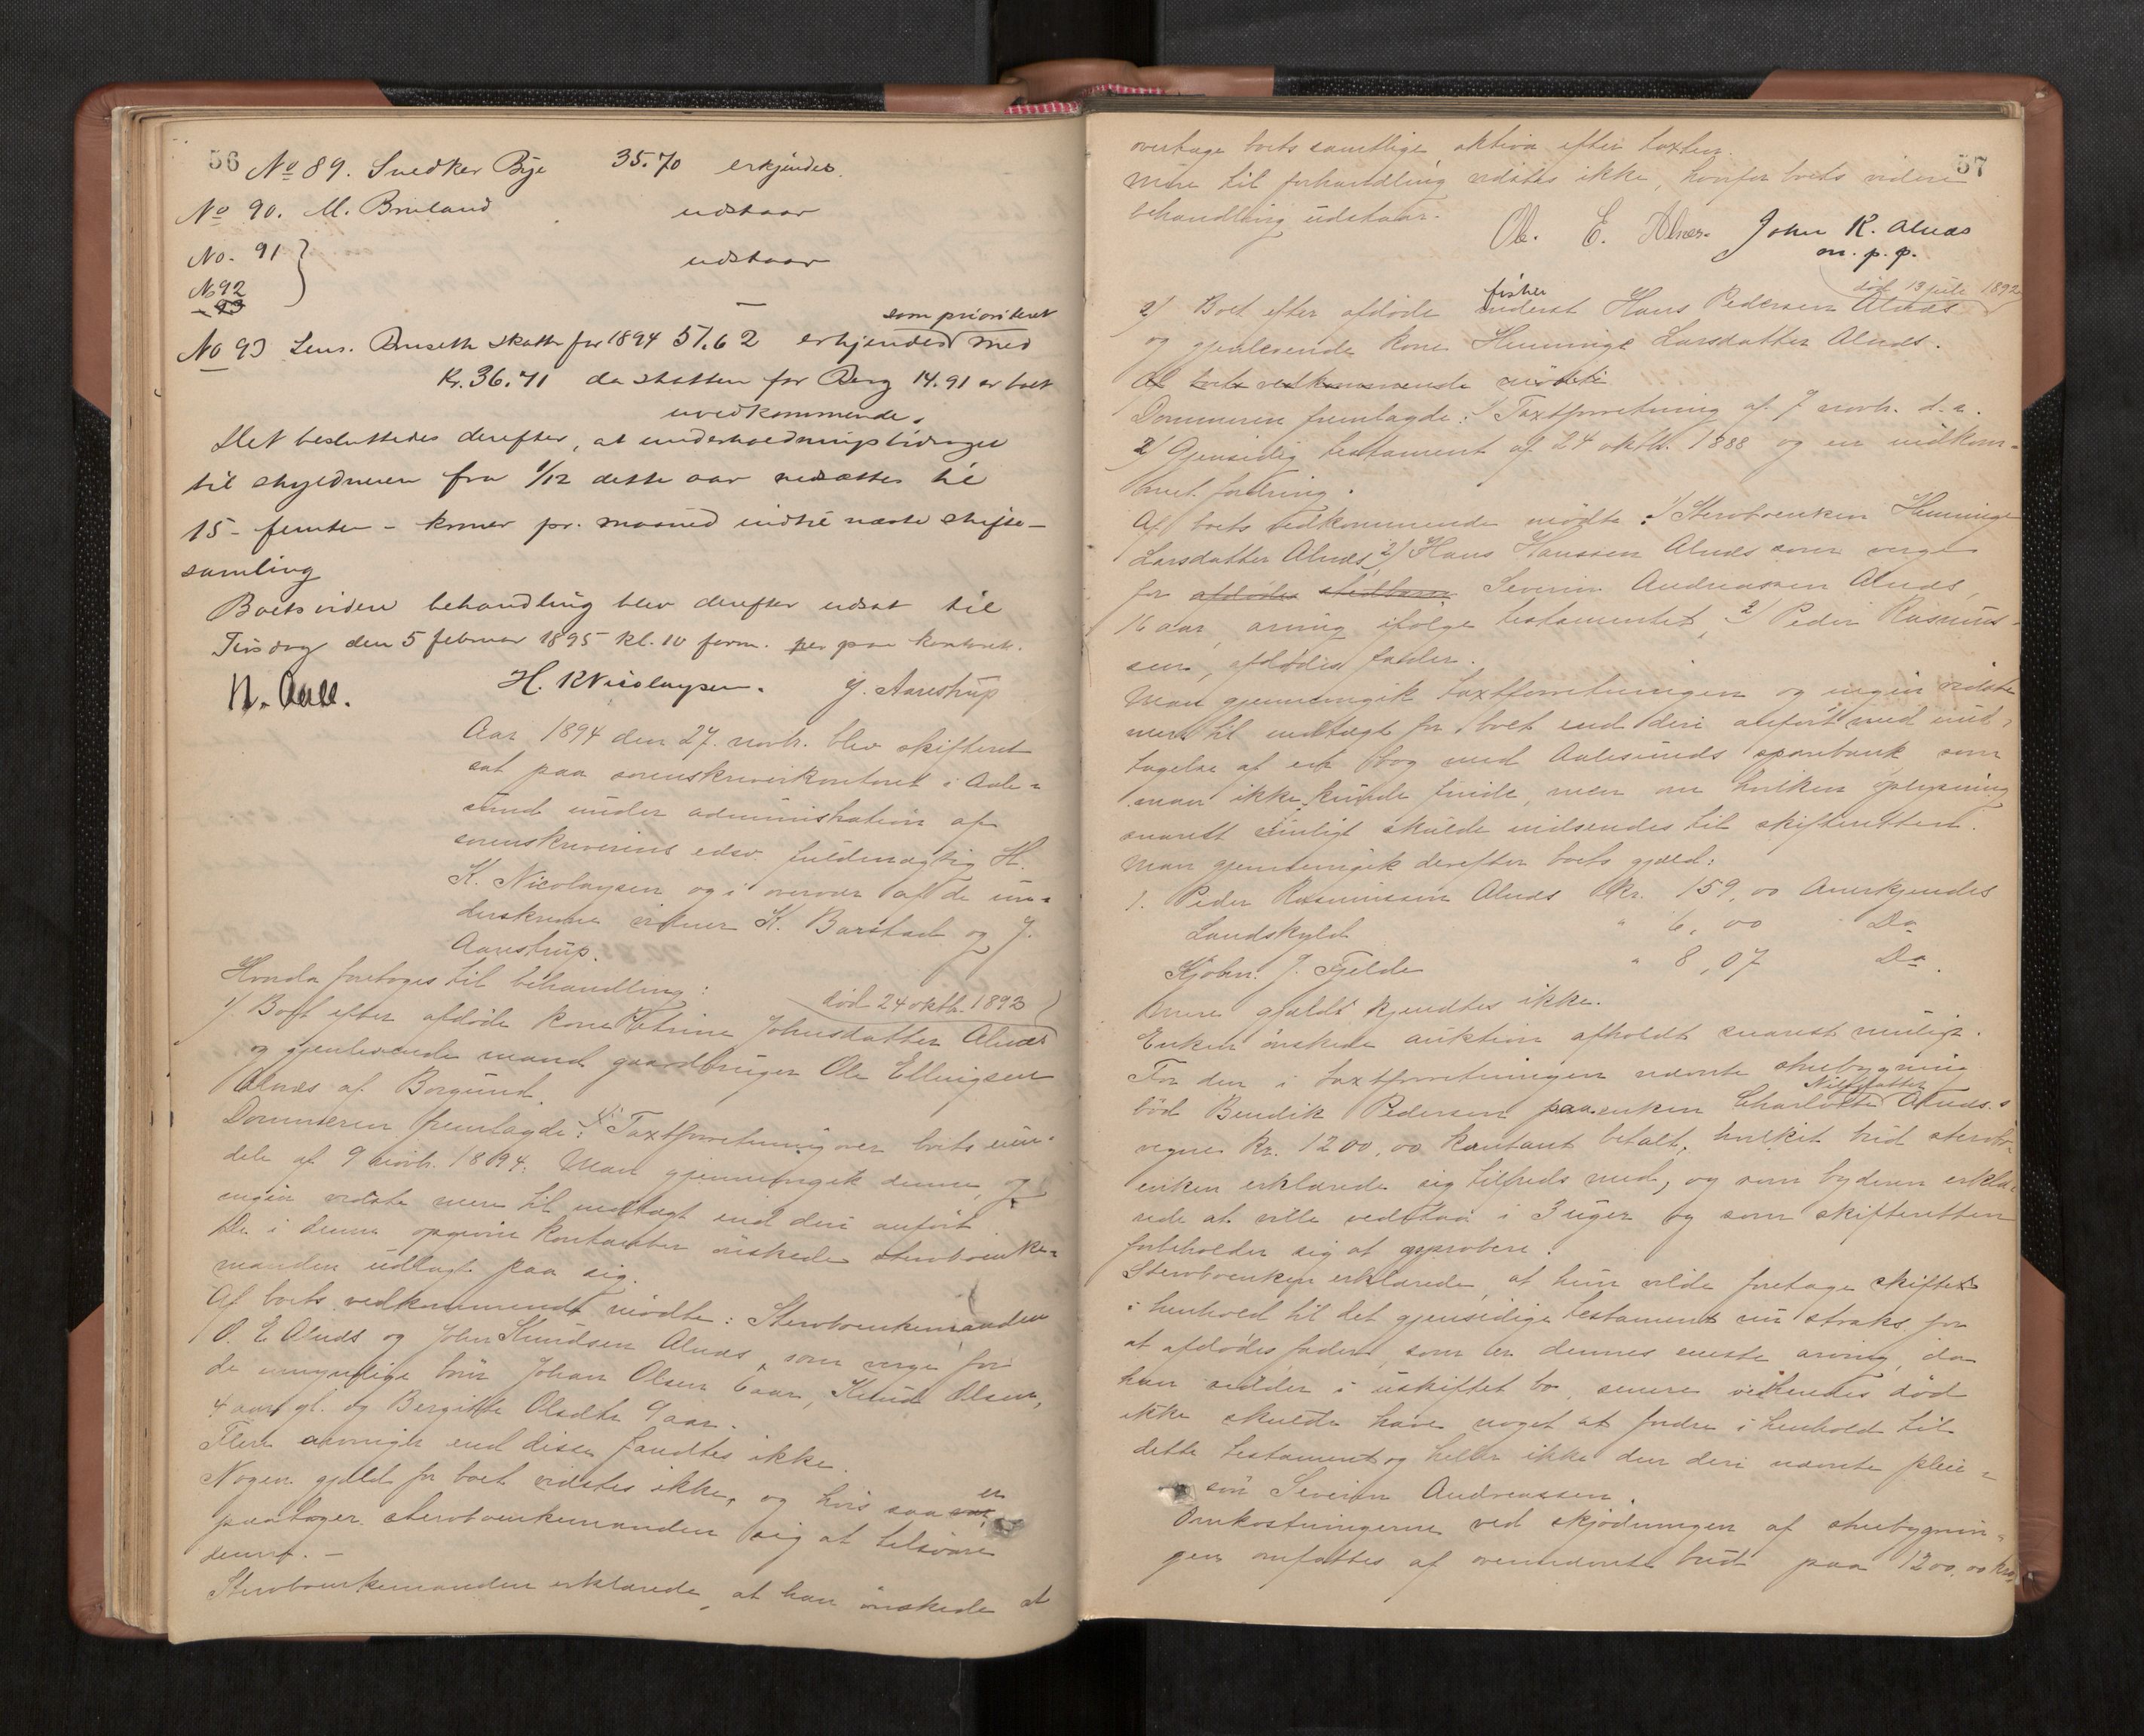 56
No 89. Snedker Bye 35.70 erkjendes.
No 90. M. Bruland udstaar
No. 91 udstaar
No 92
- 93
som prioriteret
No 93 Lens. Amseth skatte for 1894 51.62 erkjendes med
Kr. 36.71 da skatten for Berg 14.91 er boet
uvedkommende.
Det besluttedes derefter, at underholdningsbidraget
til skyldneren fra 1/12 dette aar nedsættes til
15 - femten - kroner pr. maaned indtil næste skifte-
samling
Boets videre behandling blev derefter udsat til
Tirsdag den 5 februar 1895 kl. 10 form. her paa kontoret.
N. Aall. H. K Nicolaysen. J. Aarestrup
Aar 1894 den 27. novb. blev skifteret
sat paa sorenskriverkontoret i Aale-
sund under administration af
sorenskriverens edsv. fuldmægtig H.
K. Nicolaysen og i overvær af de un-
derskrevne vidner K. Barstad og J.
Aarestrup.
Hvorda foretoges til behandling:
død 24 oktb. 1893
1/. Boet efter afdøde kone Petrine Johnsdatter Alnæs
og gjenlevende mand gaardbruger Ole Ellingsen
Alnæs af Borgund.
Dommeren fremlagde: 1/ Taxtforretning over boets eien-
dele af 9 novb. 1894. Man gjennemgik denne, og
ingen vidste mere til indtægt end deri anført.
De i denne opgivne kontanter ønskede sterboenke-
manden udlagt paa sig.
Af boets vedkommende mødte: Sterboenkemanden
O. E Alnæs og John Knudsen Alnæs, som verge for
de umyndige børn Johan Olsen 6 aar, Knud Olsen,
4 aar gl. og Bergitte Olsdtr 9 aar.
Flere arvinger end disse fandtes ikke.
Nogen gjæld for boet vidstes ikke, og hvis saa var er
paatager sterboenkemanden sig at tilsvare
denne. -
Sterboenkemanden erklærede, at han ønskede at
57
overtage boets samtlige aktiva efter taxten.
Mere til forhandling vidstes ikke, hvorfor boets videre
behandling udstaar.
Ole. E. Alnes. John K. Alnæs
m. p. p.
fisker død 13 juli 1892
2/ Boet efter afdøde inderst Hans Pedersen Alnæs
og gjenlevende kone Henninge Larsdatter Alnæs.
Af boets vedkommende mødte
Dommeren fremlagde: 1/ Taxtforretning af 7 novb. d. a.
2/ Gjensidig testament af 24 oktb. 1888 og en indkom-
met fordring.
Af boets vedkommende mødte: 1/ Sterboenken Henninge
Larsdatter Alnæs, 2/ Hans Hanssen Alnæs som verge
for afdødes stedbarn Severin Andreassen Alnæs,
16 aar, arving ifølge testamentet, 3/ Peder Rasmus-
sen, afdødes fader.
Man gjennemgik taxtforretningen og ingen vidste
mere til indtægt for boet end deri anført med und-
tagelse af en bog med Aalesunds sparebank som
man ikke kunde finde, men om hvilken oplysning
snarest muligt skulde indsendes til skifteretten.
Man gjennemgik derefter boets gjæld:
1. Peder Rasmussen Alnæs kr. 159,00 Anerkjendes
Landskyld " 6,00 Do
Kjøbm. J. Fjelde " 8,07 Do.
Mere gjæld kjendtes ikke.
Enken ønskede auktion afholdt snarest muligt.
For den i taxtforretningen nævnte stuebygning
Nilsdatter
bød Bendik Pedersen paa enken Charlotte Alnæs's
vegne kr. 1200,00 kontant betalt, hvilket bud sterbo-
enken erklærede sig tilfreds med, og som byderen erklæ-
rede at ville vedstaa i 3 uger og som skifteretten
forbeholder sig at approbere.
Sterboenken erklærede, at hun vilde foretage skiftet
i henhold til det gjensidige testament nu straks, for
at afdødes fader, som er dennes eneste arving, da
hun sidder i uskiftet bo, senere ved hendes død
ikke skulde have noget at fordre i henhold til
dette testament og heller ikke den deri nævnte pleie-
søn Severin Andreassen.
Omkostningerne ved skjødningen af stuebygnin-
gen omfattes af ovennævnte bud paa 1200,00 kr.,